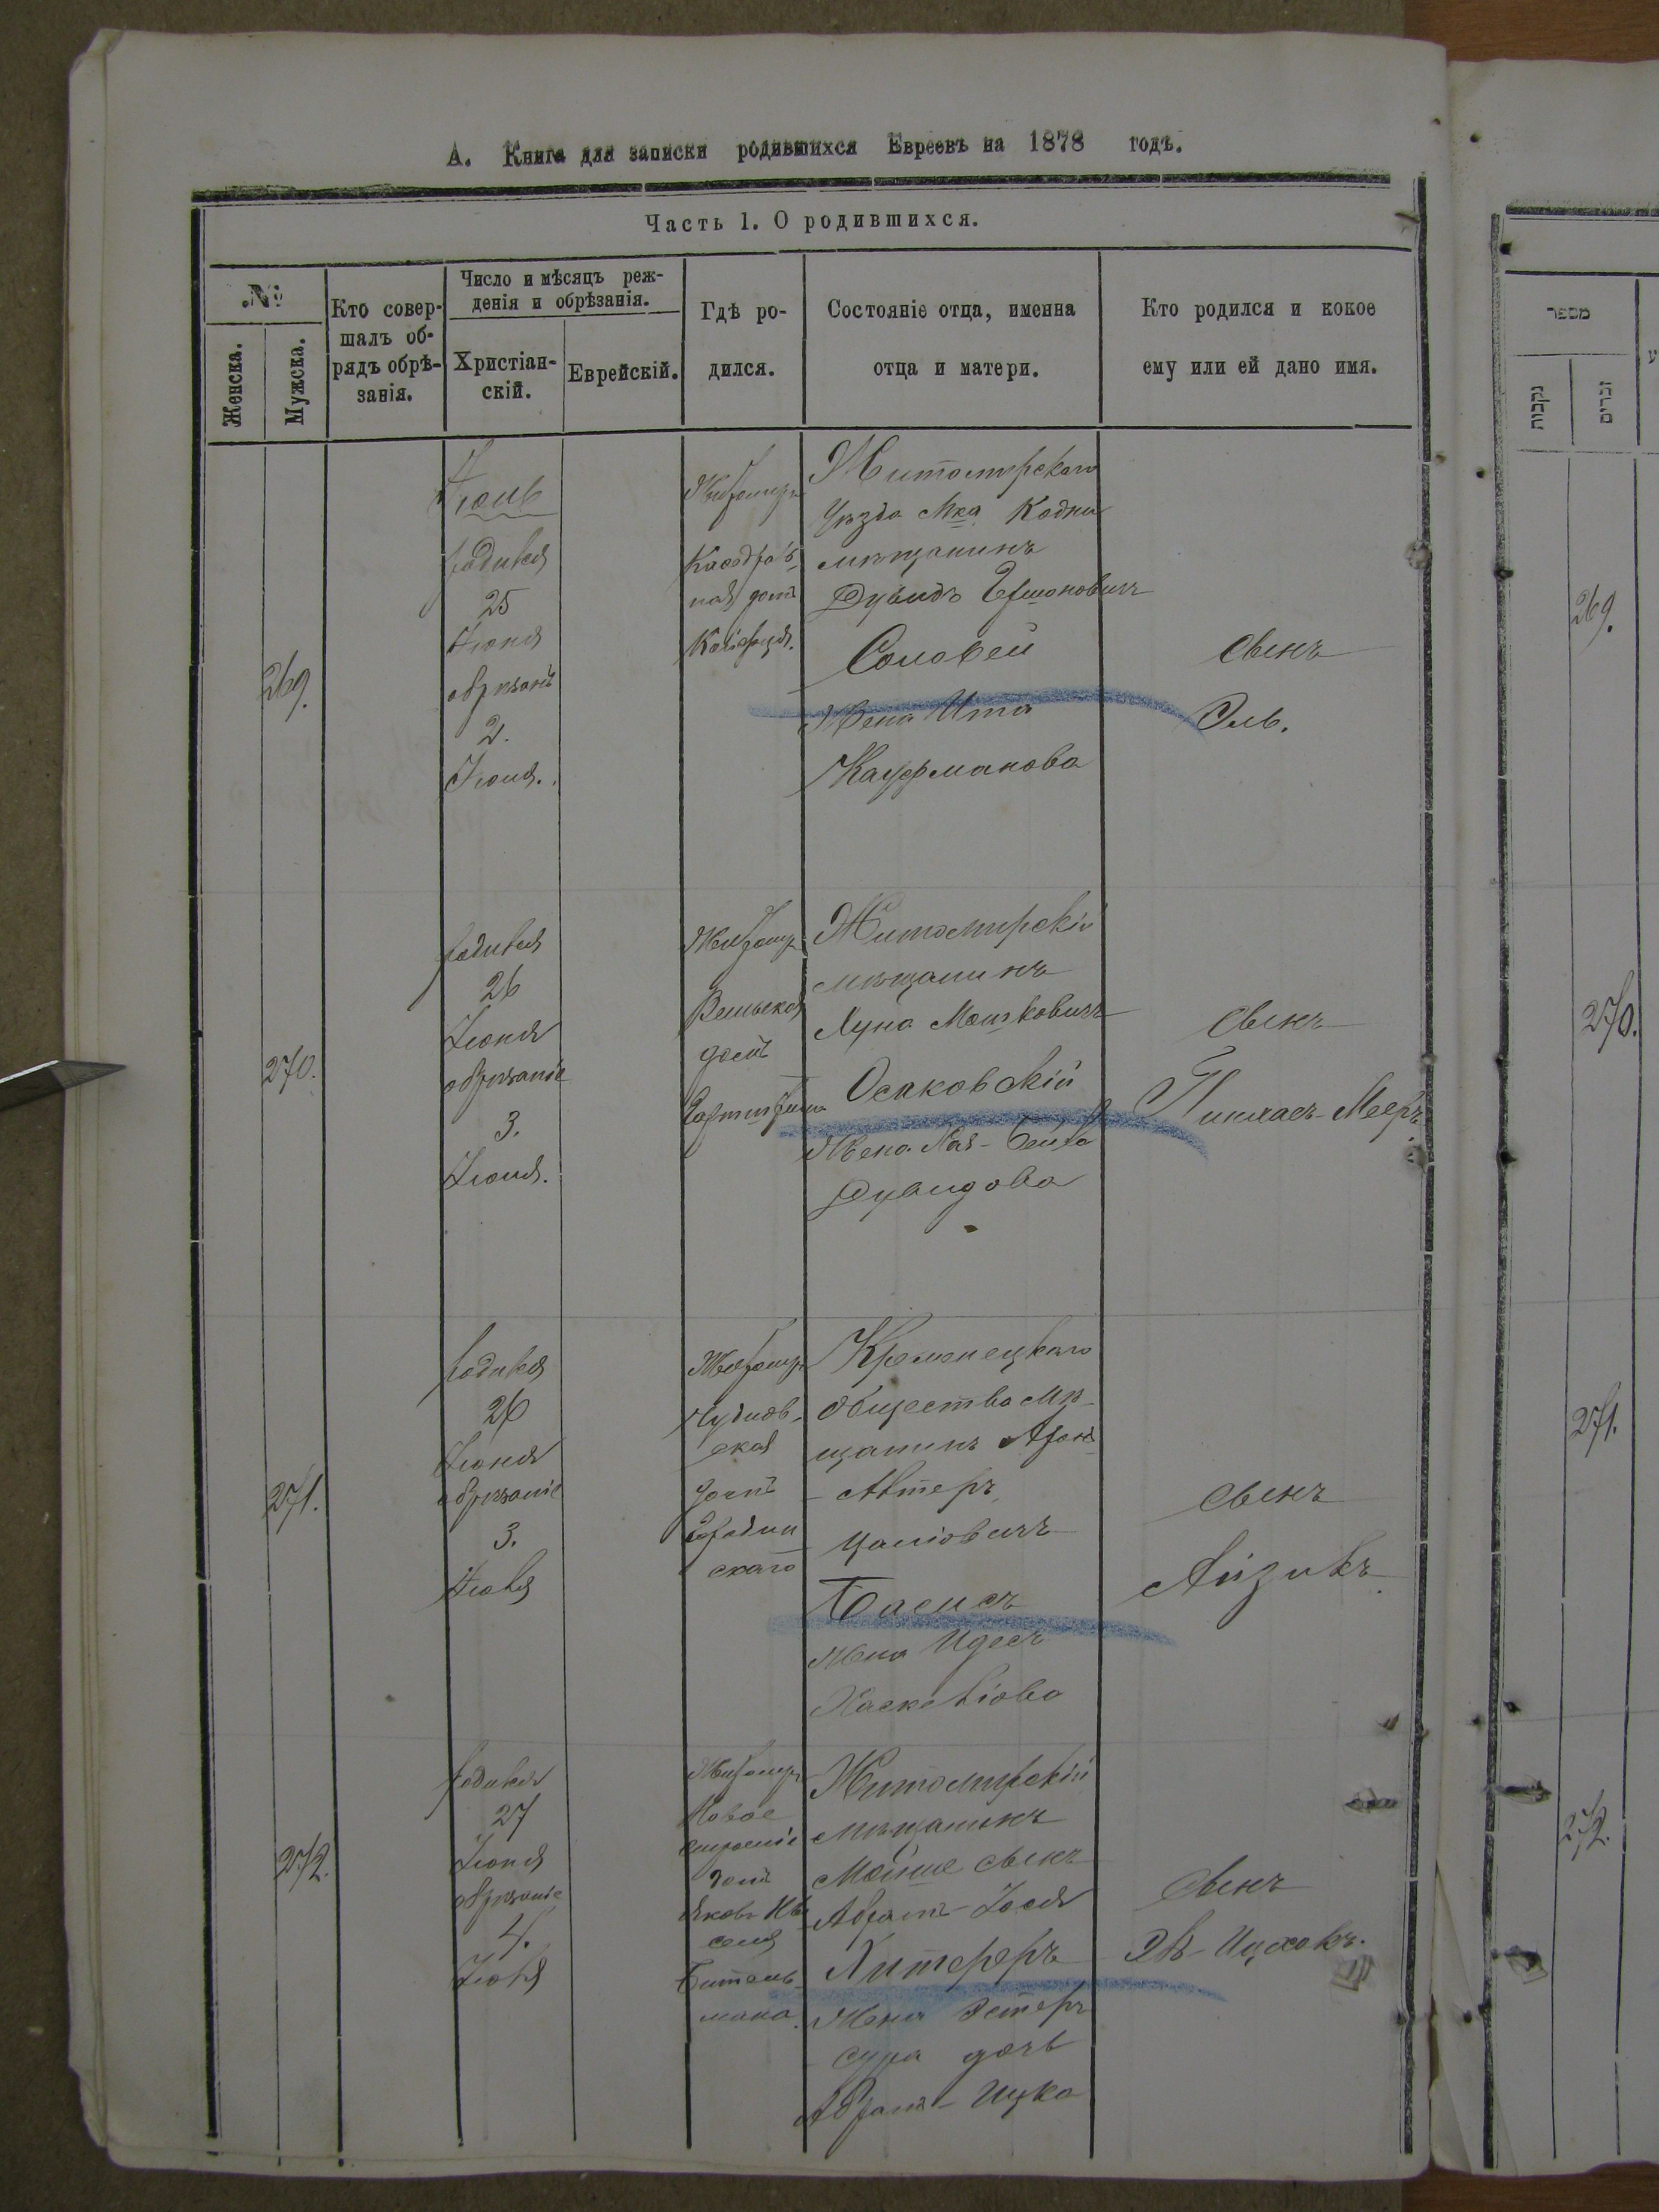 А. Книга для записки родившихся Евреевъ на 1878 годъ.
Часть 1. О родившихся.
№
Женска.
Мужска.
Кто совер-
шалъ об-
рядъ обрѣ-
занія.
Число и мѣсяцъ реж-
денія и обрѣзанія.
Христіан-
скій.
Еврейскій.
Гдѣ ро-
дился.
Состояніе отца, именна
отца и матери.
Кто родился и кокое
ему или ей дано имя.
269.
Іюль
родился
25
Іюня
обрѣзанъ
2.
Іюля.
Житомиръ
домъ
Житомирскаго
Уѣзда Мка Кодни
мѣщанинъ
Дувидъ Гершоновичъ
Соловей
Жена Ита
Кауфманова
Сынъ
Эль.
270.
родился
26
Іюня
обрѣзаніе
3.
Іюля.
Житомир
Вильская
домъ
Житомирскій
мѣщанинъ
Луна Мошковичъ
Осаковскій
Жена Хая-Бейла
Дувидова
Сынъ
Пинхасъ-Мееръ.
271.
родился
26
Іюня
обрѣзаніе
3.
Іюля
Житомир
Чуднов-
ская
домъ
скаго
Кременецкаго
общества мѣ-
щанинъ Аронъ
-Алтеръ
Цаліовичъ
Басисъ
жена Идесъ
Хаскеліова
Сынъ
Айзикъ.
272.
родился
27
Іюня
обрѣзаніе
4.
Іюля
Житомир
Новое
строеніе
домъ
мана.
Житомирскій
мѣщанинъ
Мойше сынъ
Абрамъ-Іося
Хитереръ
Жена Эстеръ
Сура дочь
Абрамъ-Ицка
Сынъ
Эль-Ицхокъ.
מספר
נקבות
זכרים
269.
270.
271.
272.